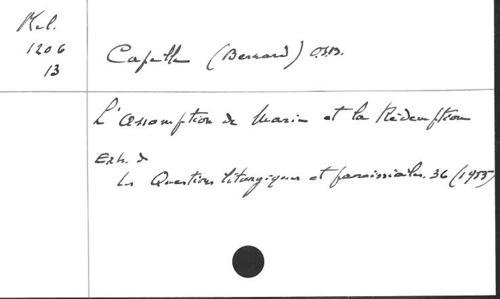 Mel.
1206
13
Capelle (Bernard) O.S.B.
L'Assomption de Marie et la Rédemption
Extr. de
Les Questions liturgiques et paroissiales. 36 (1955)